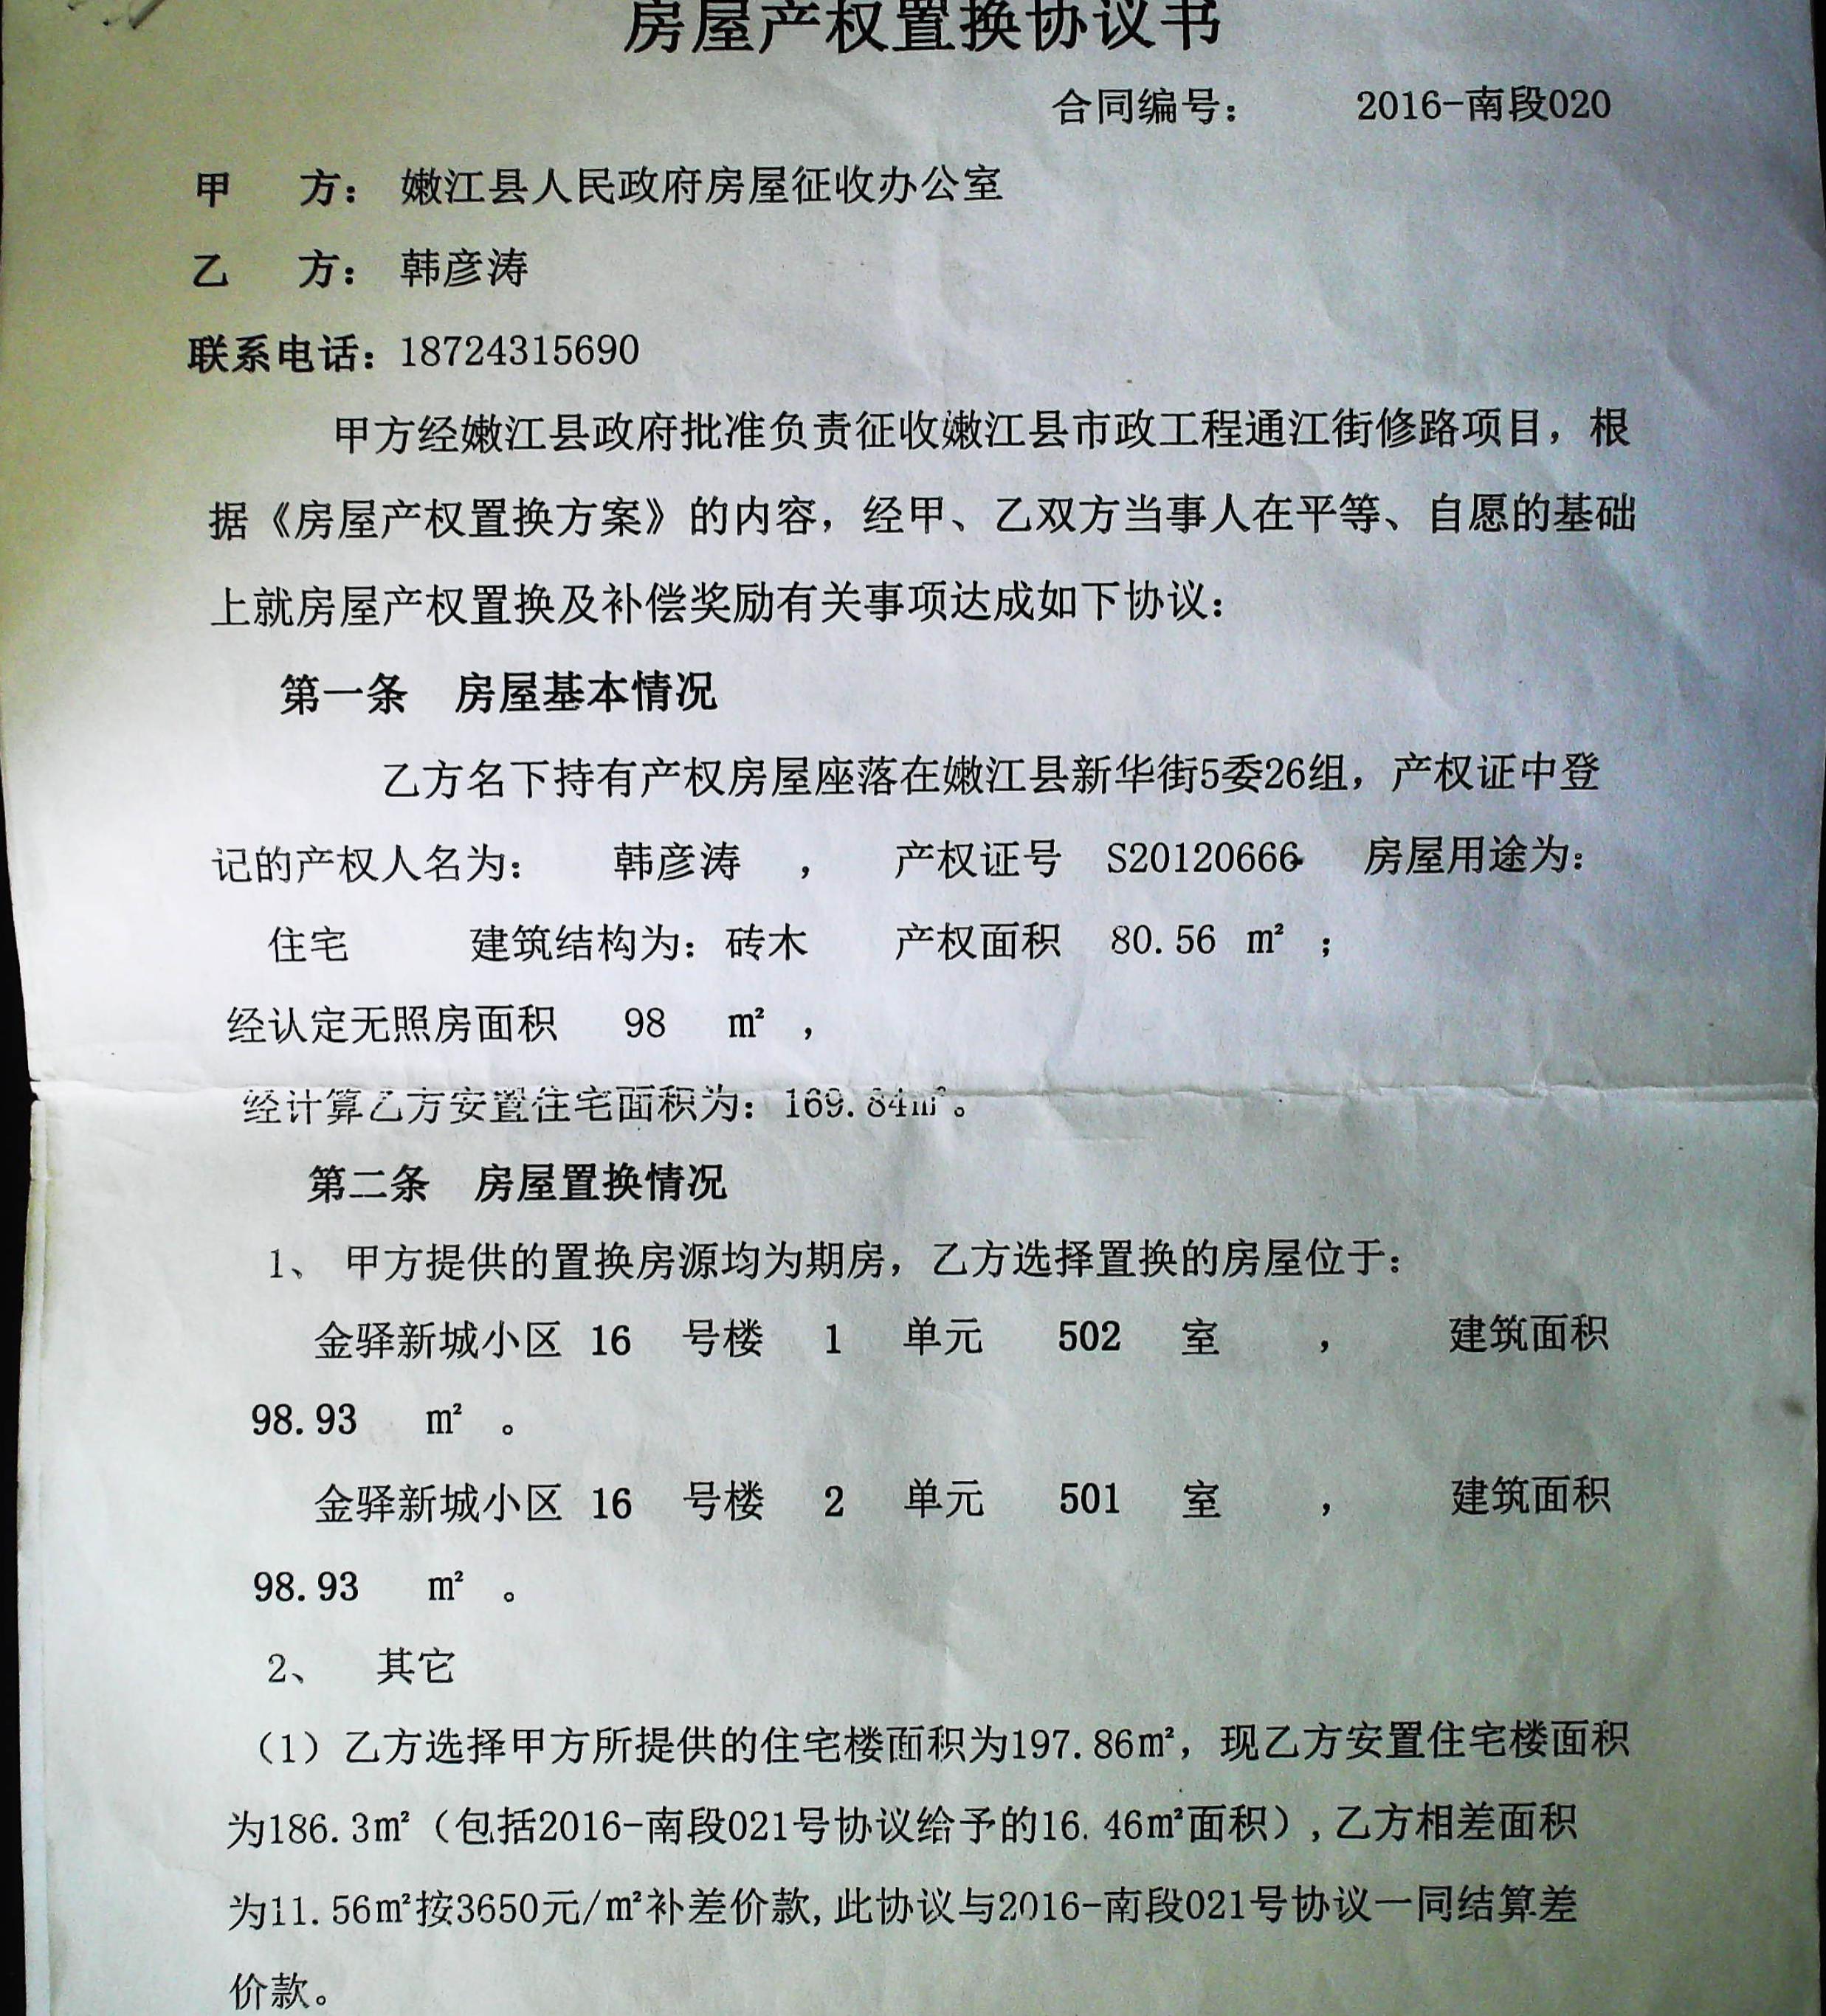 房屋产权置换协议书
合同编号： 2016-南段020
甲 方： 嫩江县人民政府房屋征收办公室
乙 方： 韩彦涛
联系电话：18724315690
甲方经嫩江县政府批准负责征收嫩江县市政工程通江街修路项目，根
据《房屋产权置换方案》的内容，经甲、乙双方当事人在平等、自愿的基础
上就房屋产权置换及补偿奖励有关事项达成如下协议：
第一条 房屋基本情况
乙方名下持有产权房屋座落在嫩江县新华街5委26组，产权证中登
记的产权人名为： 韩彦涛 ， 产权证号 S20120666 房屋用途为：
住宅 建筑结构为：砖木 产权面积 80.56 m² ；
经认定无照房面积 98 m² ，
经计算乙方安置住宅面积为：169.84m²。
第二条 房屋置换情况
1、 甲方提供的置换房源均为期房，乙方选择置换的房屋位于：
金驿新城小区 16 号楼 1 单元 502 室 ， 建筑面积
98.93 m² 。
金驿新城小区 16 号楼 2 单元 501 室 ， 建筑面积
98.93 m² 。
2、 其它
（1）乙方选择甲方所提供的住宅楼面积为197.86m²，现乙方安置住宅楼面积
为186.3m²（包括2016-南段021号协议给予的16.46m²面积）,乙方相差面积
为11.56m²按3650元/m²补差价款,此协议与2016-南段021号协议一同结算差
价款。